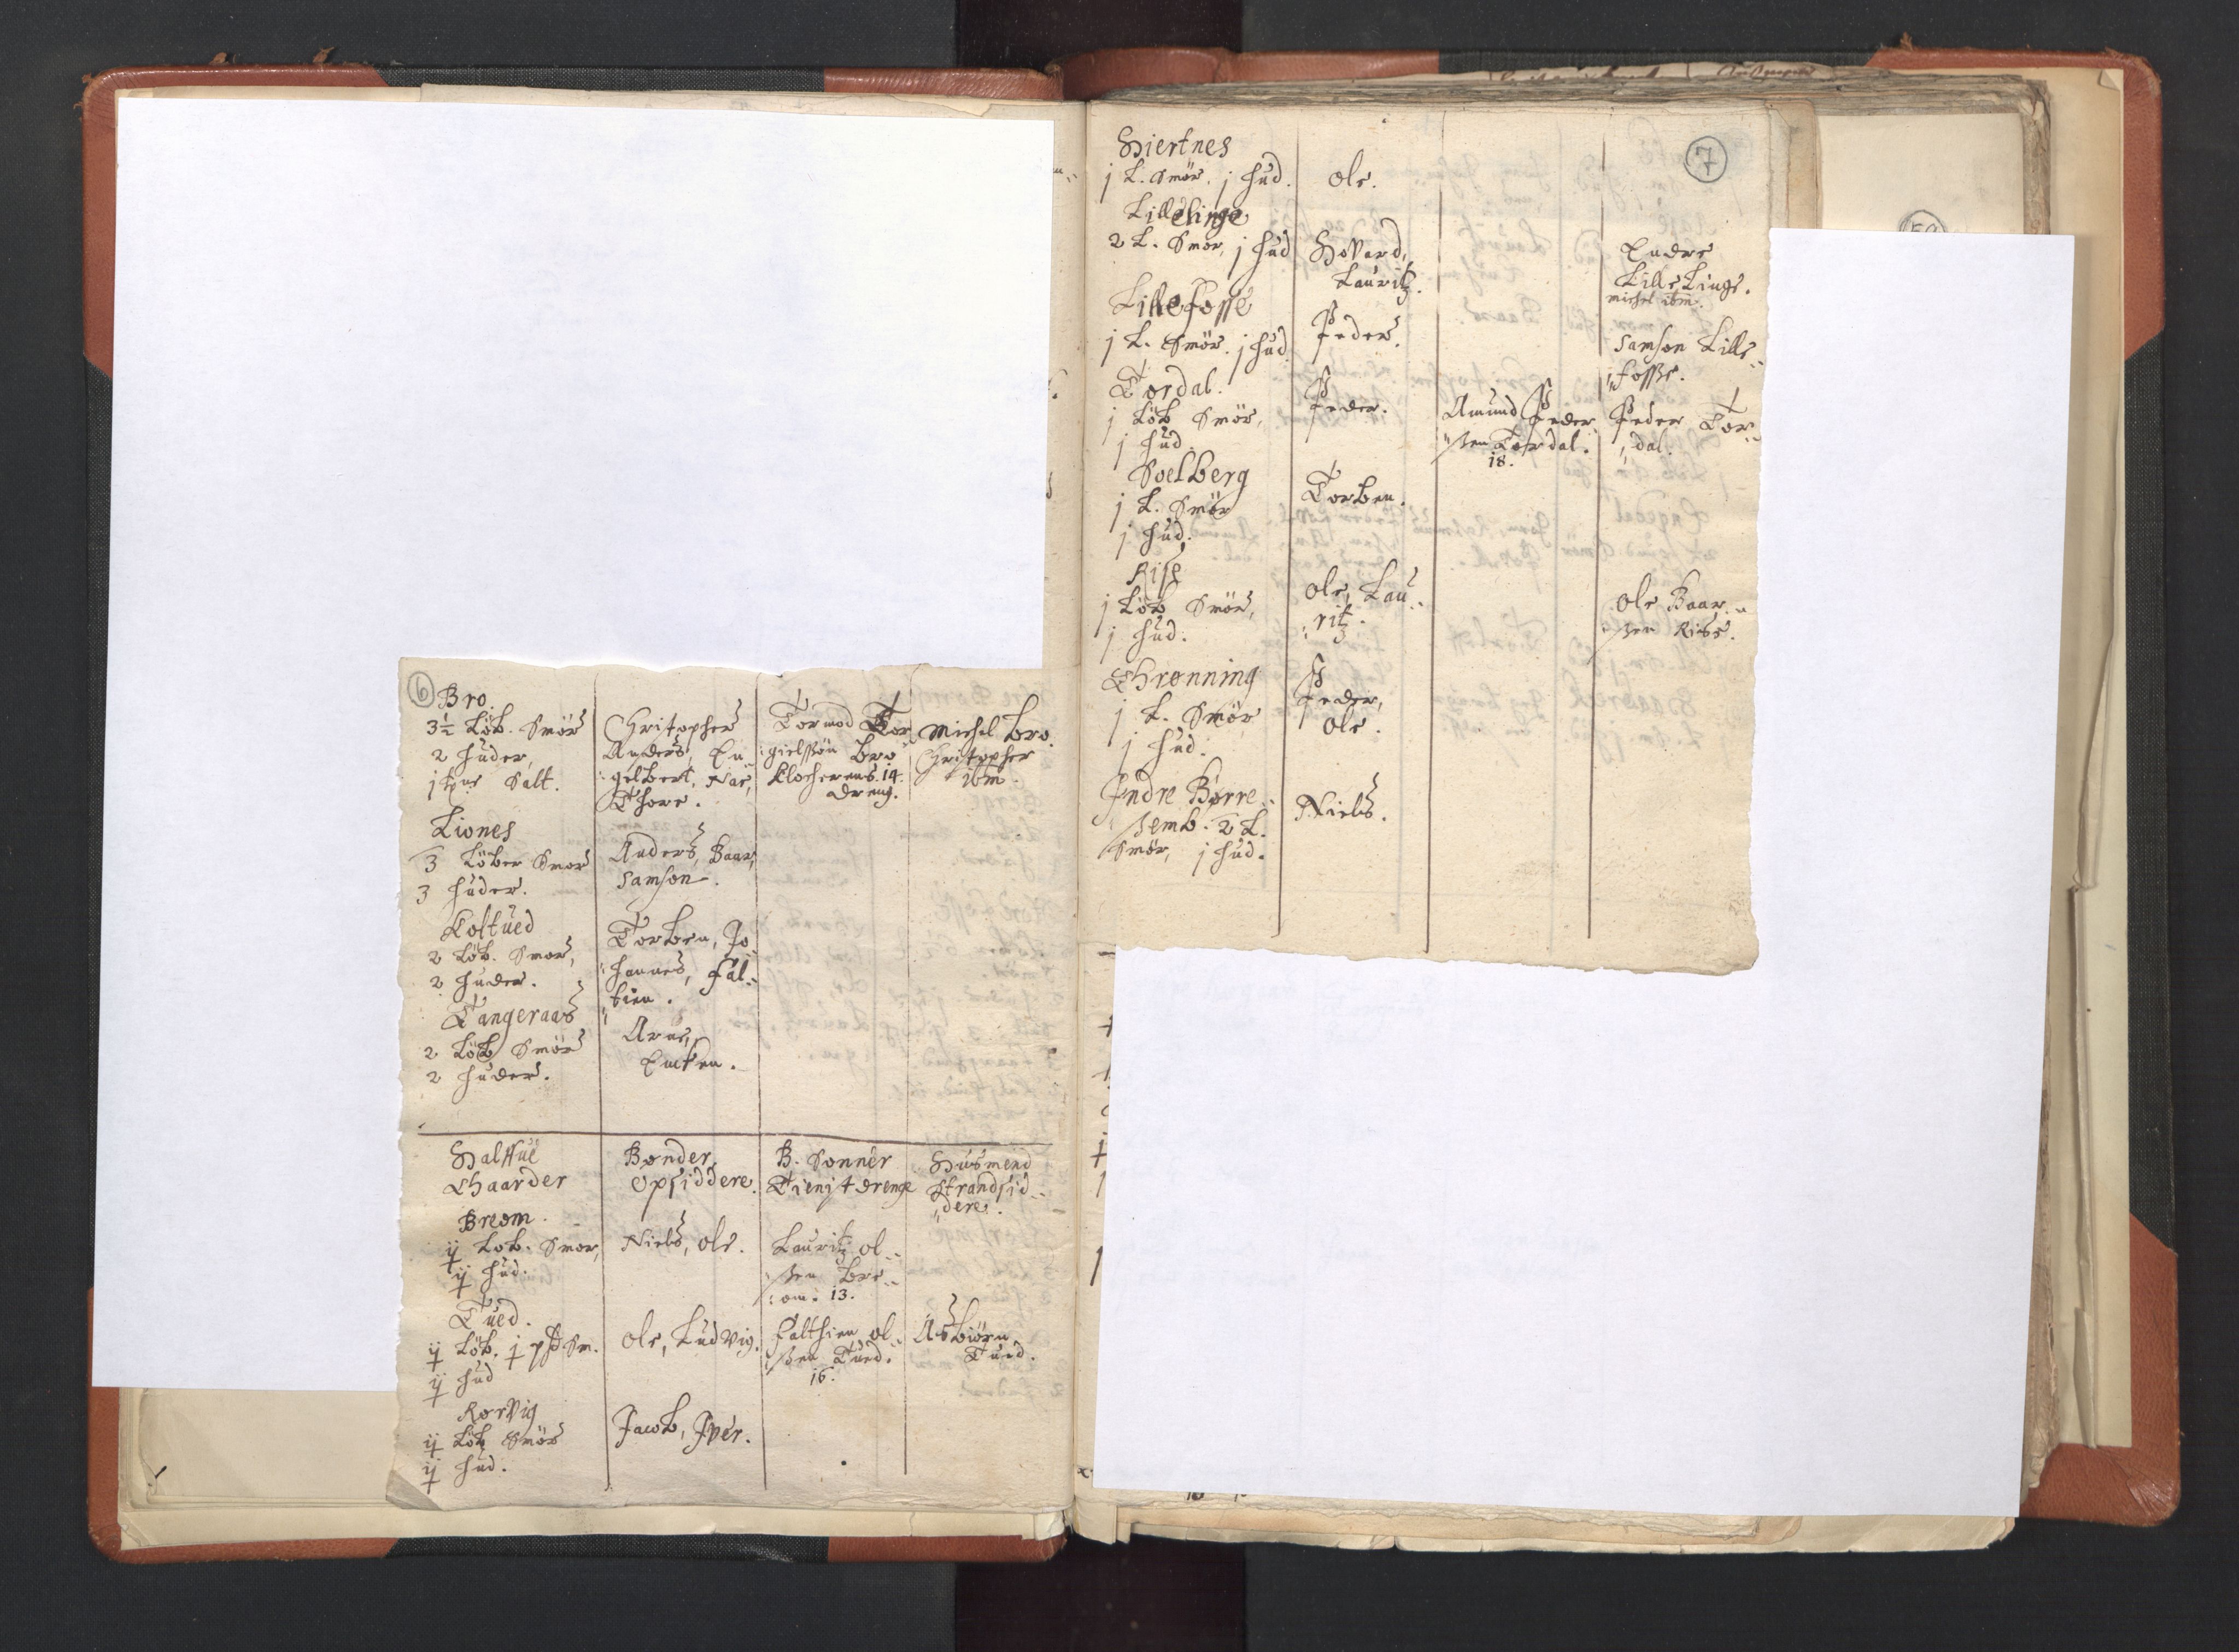 6
Bro.
3½ Löb. Smör
2 huder,
j tn Salt.
Christopher
Anders, En-
gelbert, Nas,
Thore.
Tormod Tor
gielssön Bro
klocherens 14.
dreng.
Michel bro.
Christopher
ibm.
Liones
3 Löber Smör
3 huder.
Anders, Baar,
Samson.
Toltued
2 Löb. Smör,
2 huder.
Torben, Jo-
hannes, Fal-
tien.
Tangeraas
2 Löb Smör
2 huder.
Arne,
Enken.
Halffue
Ghaarder
Bønder
Opsiddere.
B. Sønner
Tienst drenge
Husmend
Strandsid-
dere.
Breom.
ij Løb. Smør,
ij hud.
Niels, Ole.
Lauritz Ol-
sen Bre-
om. 13.
Tued.
ij Löb. j pd Sm.
ij hud
Ole, Ludvig.
Falthien Ol-
sen Tued.
16.
Asbiørn
Tued.
Rørvig
ij Löb Smör
ij hud.
Jacob, Iver.
7
Hiertnes
j L. Smör, j hud.
Ole.
Lillelinge
2 L. Smör, j hud
Hovard,
Lauritz.
Endre
Lille Linge.
michel ibm.
Lillefosse
j L. Smör. j hud.
Peder.
Samson Lille-
fosse.
Tordal.
j Löb Smör,
j hud.
Peder.
Amund Peder-
sen Tordal.
18.
Peder Tor-
dal.
Soelberg
j L. Smör
j hud.
Torben.
Rise
j Löb Smör,
j hud.
Ole, Lau-
ritz.
Ole Baar-
sen Rise.
Ghrønning
j L. Smör
j hud.
Peder,
Ole.
Indre Børre-
semb. 2 L.
Smör, j hud.
Niels.